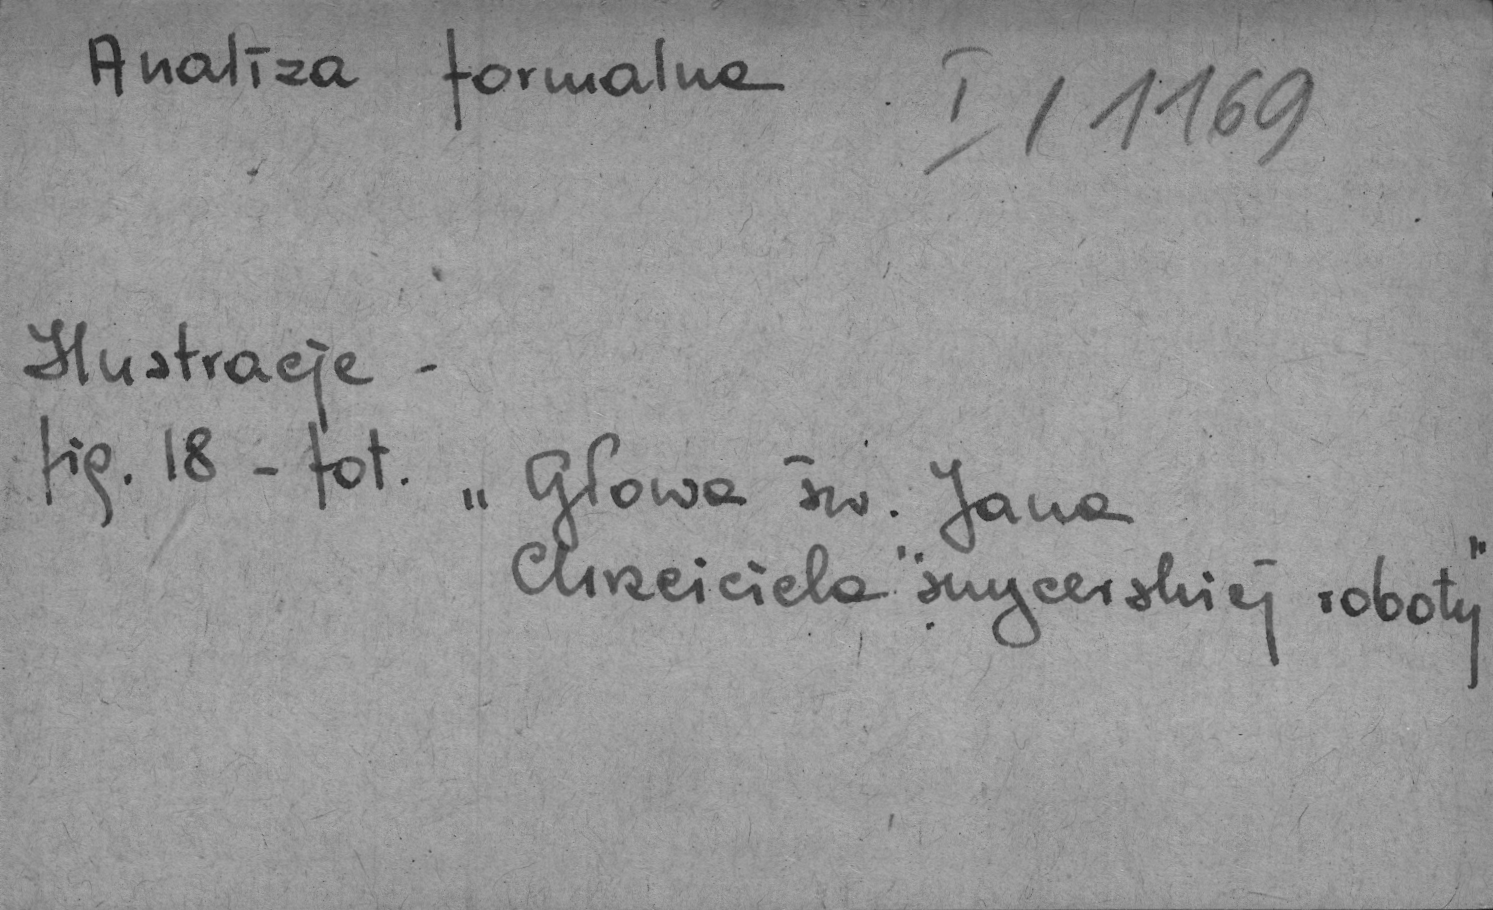 Analiza formalna I / 1169
Ilustracje -
fig. 18 - fot. „Głowa św. Jana
Chrzciciela" „snycerskiej roboty"